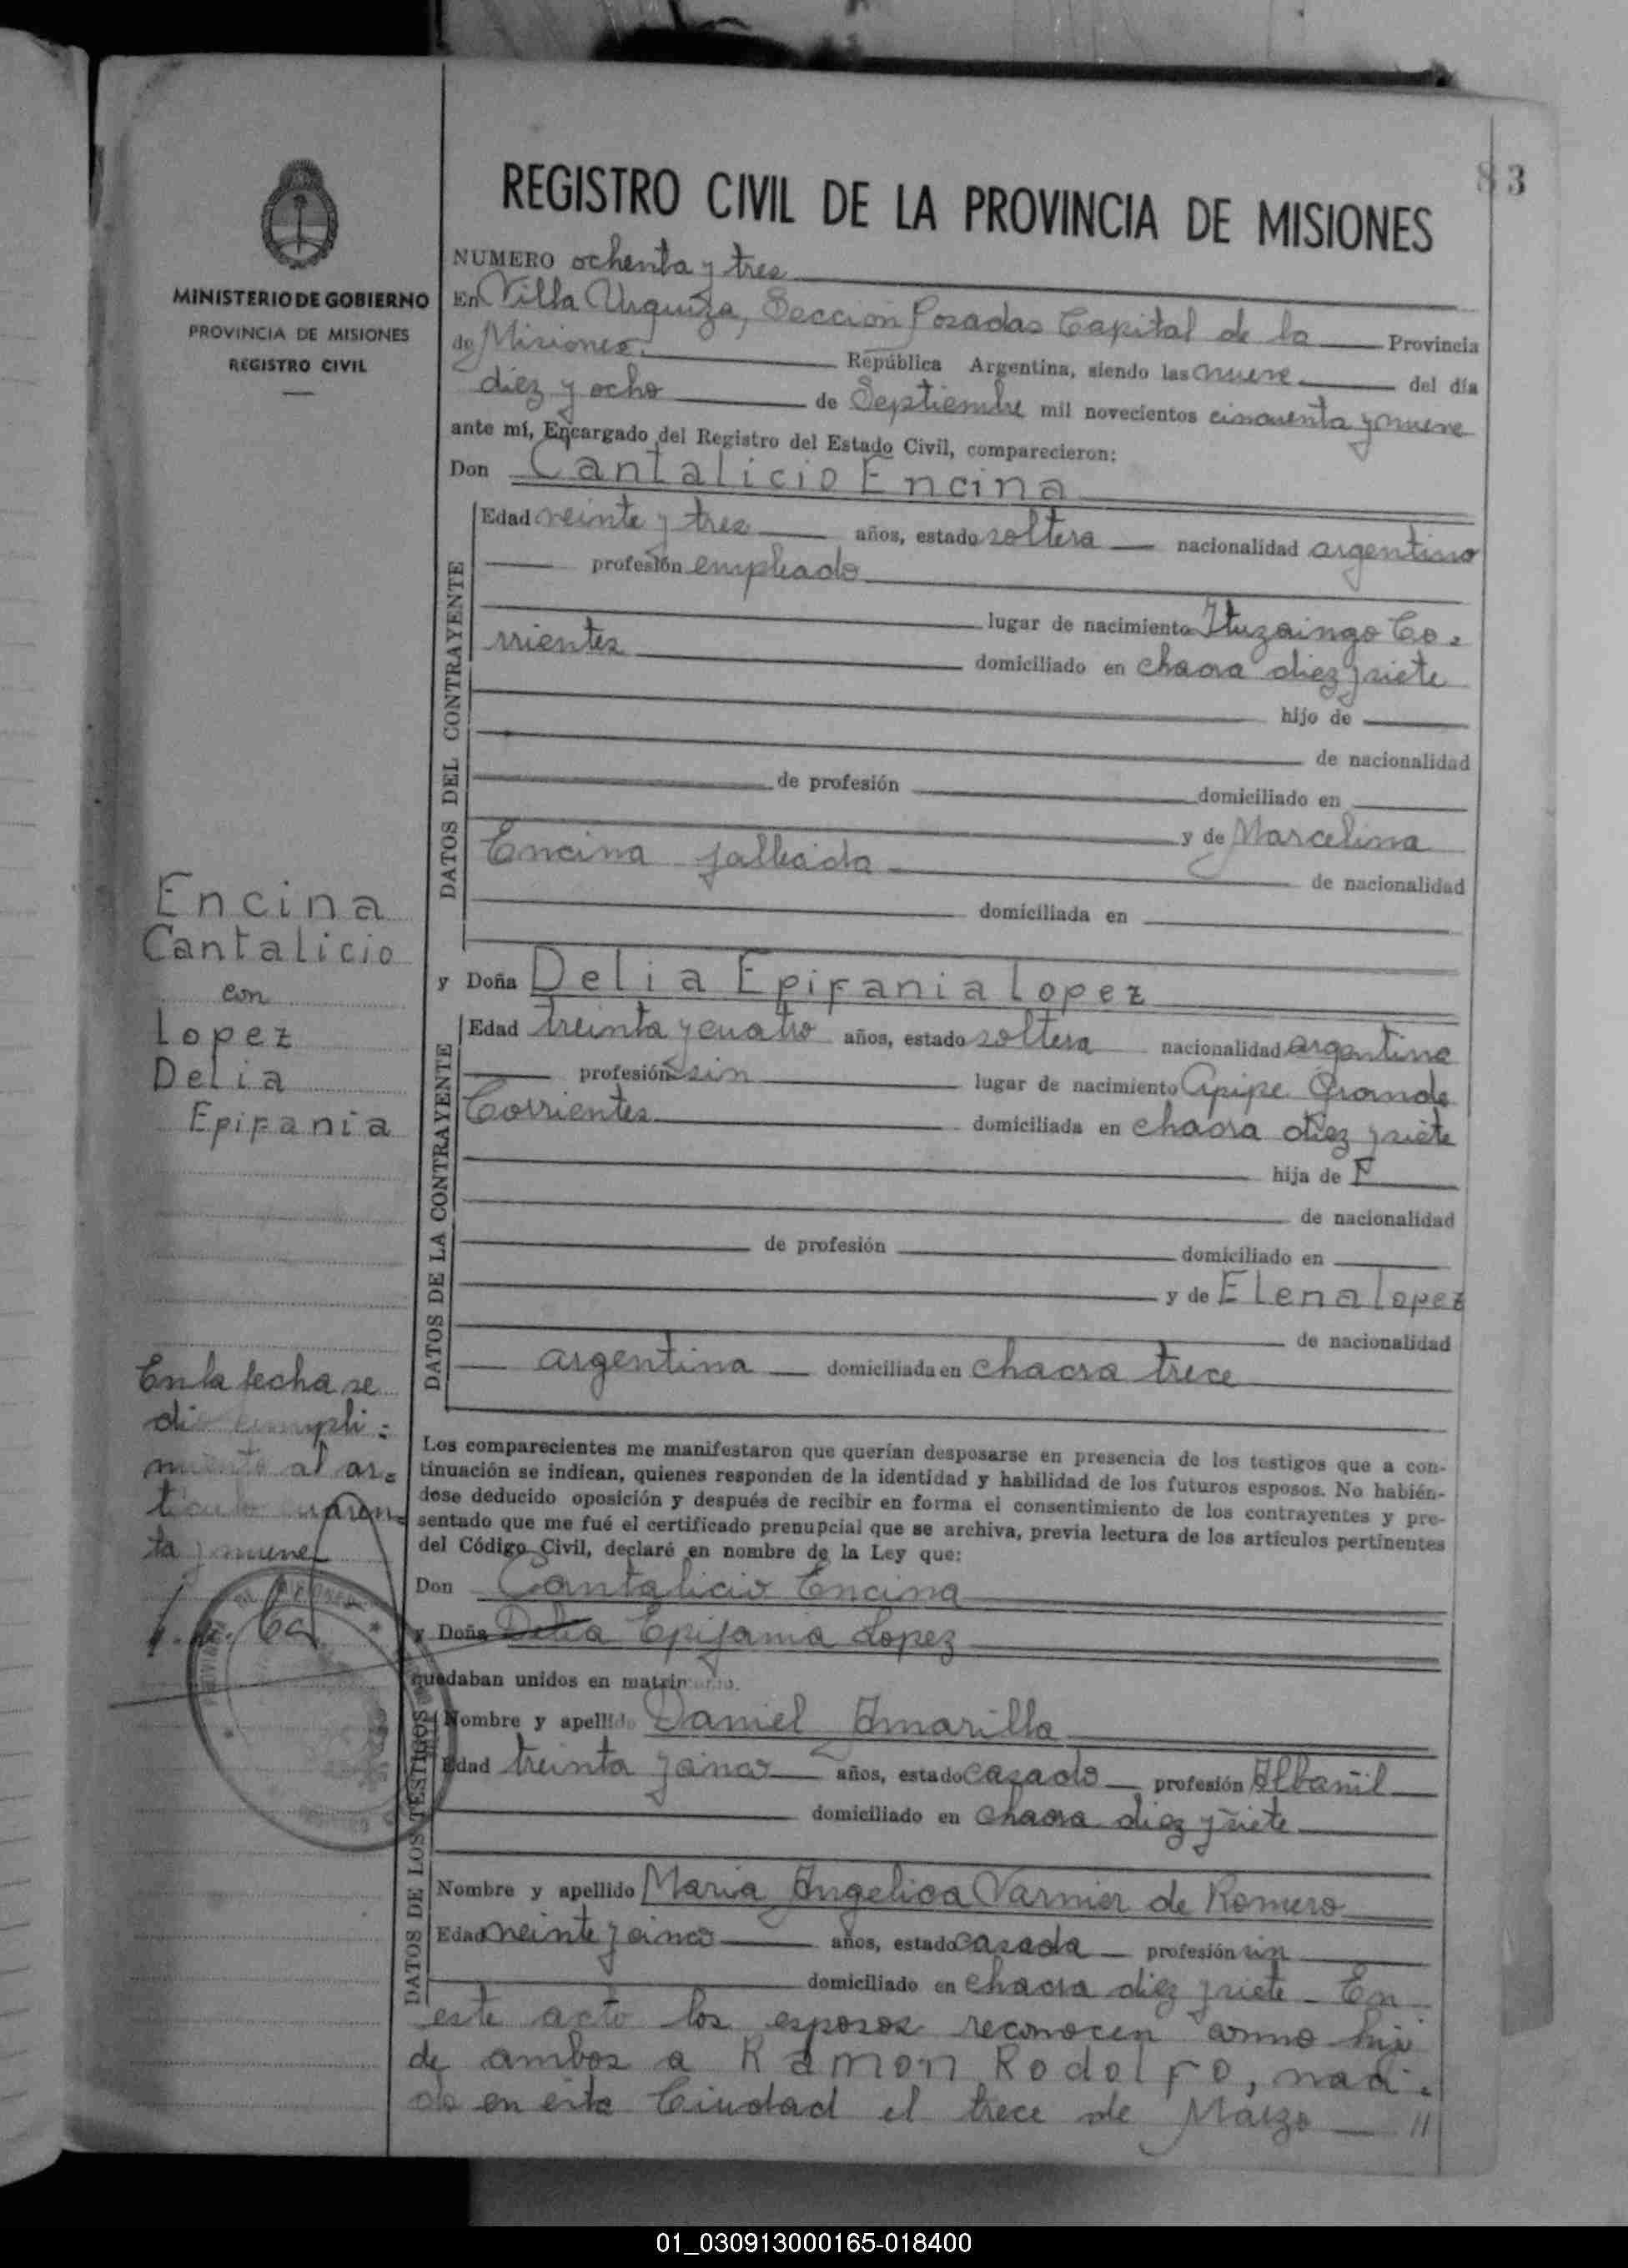 83
REGISTRO CIVIL DE LA PROVINCIA DE MISIONES
MINISTERIO DE GOBIERNO
PROVINCIA DE MISIONES
REGISTRO CIVIL
NUMERO ochenta y tres
En Villa Urquiza, Seccion Posadas Capital de la Provincia
de Misiones República Argentina, siendo las nueve del día
diez y ocho de Septiembre mil novecientos cincuenta y nueve
ante mí, Encargado del Registro del Estado Civil, comparecieron:
Don Cantalicio Encina
DATOS DEL CONTRAYENTE
Edad veinte y tres años, estado soltera nacionalidad argentino
profesión empleado
lugar de nacimiento Ituzaingo Co=
rrientes domiciliado en chacra diez y siete
hijo de
de nacionalidad
de profesión domiciliado en
y de Marcelina
Encina fallecida de nacionalidad
domiciliada en
Encina
Cantalicio
con
Lopez
Delia
Epifania
y Doña Delia Epifania Lopez
DATOS DE LA CONTRAYENTE
Edad treinta y cuatro años, estado soltera nacionalidad argentina
profesión sin lugar de nacimiento Apipe Grande
Corrientes domiciliada en chacra diez y siete
hija de F
de nacionalidad
de profesión domiciliado en
y de Elena Lopez
de nacionalidad
argentina domiciliada en chacra trece
En la fecha se
dio cumpli=
miento al ar=
ticulo cuaren=
ta y nueve
Los comparecientes me manifestaron que querían desposarse en presencia de los testigos que a con-
tinuación se indican, quienes responden de la identidad y habilidad de los futuros esposos. No habién-
dose deducido oposición y después de recibir en forma el consentimiento de los contrayentes y pre-
sentado que me fué el certificado prenupcial que se archiva, previa lectura de los artículos pertinentes
del Código Civil, declaré en nombre de la Ley que:
Don Cantalicio Encina
y Doña Delia Epifania Lopez
quedaban unidos en matrimonio.
DATOS DE LOS TESTIGOS
Nombre y apellido Daniel Amarilla
Edad treinta y cinco años, estado casado profesión Albañil
domiciliado en chacra diez y siete
Nombre y apellido Maria Angelica Varnier de Romero
Edad veinte y cinco años, estado casada profesión sin
domiciliado en chacra diez y siete - En
este acto los esposos reconocen como hijo
de ambos a Ramon Rodolfo, naci=
do en esta Ciudad el trece de Marzo //
01_030913000165-018400